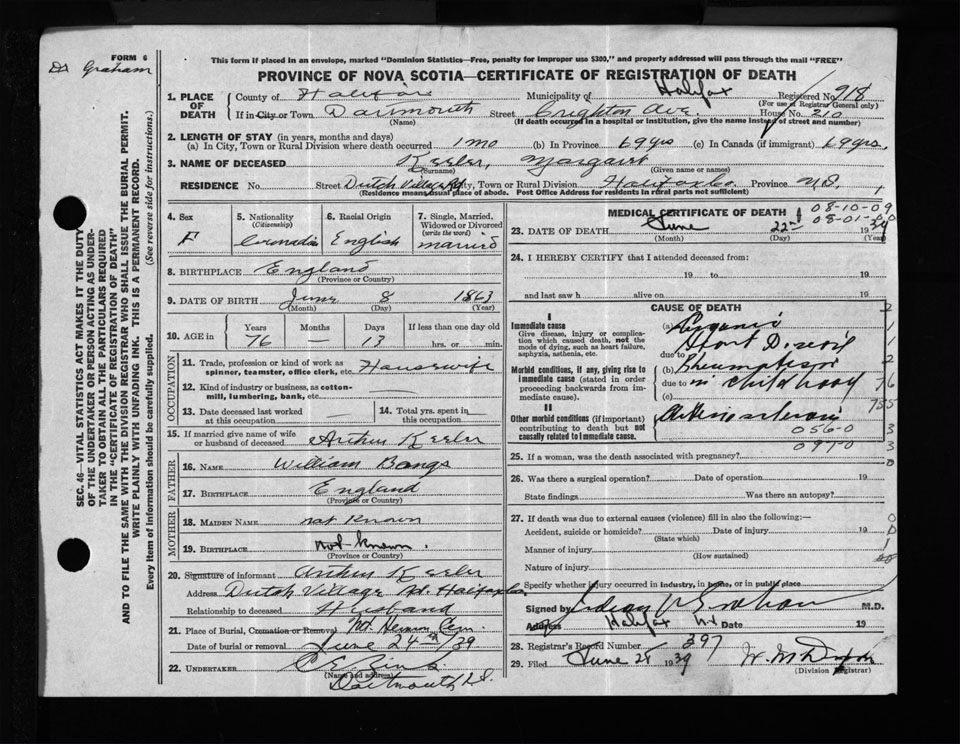 FORM 6
Dr Graham
This form if placed in an envelope, marked "Dominion Statistics—Free, penalty for improper use $300," and properly addressed will pass through the mail "FREE"
PROVINCE OF NOVA SCOTIA—CERTIFICATE OF REGISTRATION OF DEATH
SEC. 46—VITAL STATISTICS ACT MAKES IT THE DUTY
OF THE UNDERTAKER OR PERSON ACTING AS UNDER-
TAKER TO OBTAIN ALL THE PARTICULARS REQUIRED
IN THE "CERTIFICATE OF REGISTRATION OF DEATH"
AND TO FILE THE SAME WITH THE DIVISION REGISTRAR WHO SHALL ISSUE THE BURIAL PERMIT.
WRITE PLAINLY WITH UNFADING INK. THIS IS A PERMANENT RECORD.
Every item of information should be carefully supplied. (See reverse side for instructions.)
1. PLACE OF DEATH
County of Halifax Municipality of Halifax Registered No 918
(For use of Registrar General only)
If in City or Town Dartmouth Street Crighton Ave House No 210
(Name) (If death occurred in a hospital or institution, give the name instead of street and number)
2. LENGTH OF STAY (in years, months and days)
(a) In City, Town or Rural Division where death occurred 1 mo (b) In Province 69 yrs (c) In Canada (if immigrant) 69 yrs.
3. NAME OF DECEASED Keeler, Margaret
(Surname) (Given name or names)
RESIDENCE No. Street Dutch Village Rd City, Town or Rural Division Halifax Co. Province N.S. 1
(Residence means usual place of abode. Post Office Address for residents in rural parts not sufficient)
4. Sex F
5. Nationality (Citizenship) Canadian
6. Racial Origin English
7. Single, Married, Widowed or Divorced (write the word) married
8. BIRTHPLACE England
(Province or Country)
9. DATE OF BIRTH June 8 1863
(Month) (Day) (Year)
10. AGE in Years Months Days If less than one day old
76 — 13 hrs. or min.
OCCUPATION
11. Trade, profession or kind of work as spinner, teamster, office clerk, etc. Housewife
12. Kind of industry or business, as cotton-mill, lumbering, bank, etc.
13. Date deceased last worked at this occupation
14. Total yrs. spent in this occupation
15. If married give name of wife or husband of deceased Arthur Keeler
FATHER
16. NAME William Bangs
17. BIRTHPLACE England
(Province or Country)
MOTHER
18. MAIDEN NAME not known
19. BIRTHPLACE not known.
(Province or Country)
20. Signature of informant Arthur Keeler
Address Dutch Village Rd. Halifax Co
Relationship to deceased Husband
21. Place of Burial, Cremation or Removal Mt. Hermon Cem.
Date of burial or removal June 24th/39
22. UNDERTAKER
(Name and address)
Dartmouth N.S.
MEDICAL CERTIFICATE OF DEATH
08-10-09
08-01-00
23. DATE OF DEATH June 22nd 1939
(Month) (Day) (Year)
24. I HEREBY CERTIFY that I attended deceased from:
19 to 19
and last saw h alive on 19
CAUSE OF DEATH
I
Immediate cause
Give disease, injury or complication which caused death, not the mode of dying, such as heart failure, asphyxia, asthenia, etc.
(a) Organic
Heart Disease
due to
Morbid conditions, if any, giving rise to immediate cause (stated in order proceeding backwards from immediate cause).
(b) Rheumatism
due to in childhood
(c)
II
Other morbid conditions (if important) contributing to death but not causally related to immediate cause.
056-0
097-0
25. If a woman, was the death associated with pregnancy?
26. Was there a surgical operation? Date of operation 19
State findings Was there an autopsy?
27. If death was due to external causes (violence) fill in also the following:—
Accident, suicide or homicide? Date of injury 19
(State which)
Manner of injury
(How sustained)
Nature of injury
Specify whether injury occurred in industry, in home, or in public place
Signed by M.D.
Address Halifax NS Date 19
28. Registrar's Record Number 397
29. Filed June 28 1939
(Division Registrar)